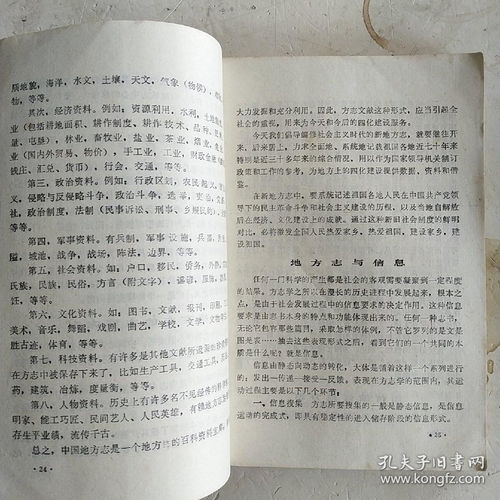 质地貌，海洋，水文，土壤，天文，气象（物候），
物，等等。
其次，经济资料。例如：资源利用，水利，土地
业（包括耕地面积、耕作制度、耕作技术、品种、
量、屯垦），林业，畜牧业，盐业，茶业，烟业，
业（国内外贸易、物价），手工业，工业，财政金融
钱庄，汇兑、货币），行会，交通，等等。
第三，政治资料。例如，行政区划，农民起义，
义，侵略与反侵略斗争，政治斗争，选举，吏治，
社，政治制度，法制（民事诉讼，刑事、乡规民约），
等等。
第四，军事资料。有兵制，军事设施，兵器，
隘，城池，战争，战场，阵法，边界，等等。
第五，社会资料。如：户口，移民，劳务，外侨，
氏族，民族，民俗，方言（附文字），谚语，
饪，等等。
第六，文化资料。如：图书，文献，报刊，印刷，
美术，音乐，舞蹈，戏剧，曲艺，学校，文学，文物
胜古迹，体育，等等。
第七，科技资料。有许多是其他文献所遗漏
在方志中被保存下来了，比如生产工具，交通工具，
药，建筑，冶炼，度量衡，等等。
第八，人物资料。历史上有许多名不见经传的科学
明家、能工巧匠、民间艺人、人民英雄，有赖地方志
存生平业绩，流传千古。
总之，中国地方志是一个地方的百科资料宝库，
· 24 ·
大力发掘和充分利用。因此，方志文献这种形式，应当引起全
社会的重视，用来为今天和今后的四化建设服务。
今天我们倡导编修社会主义时代的新地方志，就要继往开
来，后来居上，力求全面地、系统地记载祖国各地近七十年来
特别是近三十多年来的综合情况，用以作为国家领导机关制订
政策和工作的参考，为地方上的四化建设提供数据、资料和借
鉴。
在新地方志中，要系统记述祖国各地人民在中国共产党领
导下的民主革命斗争和社会主义建设的历程，以及当地自解放
后在经济、文化建设上的成就。通过这种新旧社会的鲜明对
比，必将激发全国人民热爱家乡，热爱祖国，建设家乡，建
设祖国。
地方志与信息
任何一门科学的产生都是社会的客观需要凝聚到一定程度
的结果。方志学之所以在漫长的历史进程中发展起来，根本之
点，是由于社会发展过程中的信息要求的决定作用。这种信息
要求正是由方志本身的特点和功能体现出来的。任何一种志书，
无论它包容那些篇目，采取怎样的体例，不管它罗列的是文是
图是表……抛去这些表现形式之后，看到它们的一个共同的本
质是什么呢？就是信息。
信息由静态向动态的转化，大体是循着这样一个系列进行
的：发出—传递—接受—反馈。表现在方志学的范围内，其运
动过程主要是以下几个环节：
一、信息搜集 方志所要搜集的一般是静态信息，是信息
运错的完成式，即具有稳定性的进入储存阶段的信息形式。
· 25 ·
孔夫子旧书网
www.kongfz.com